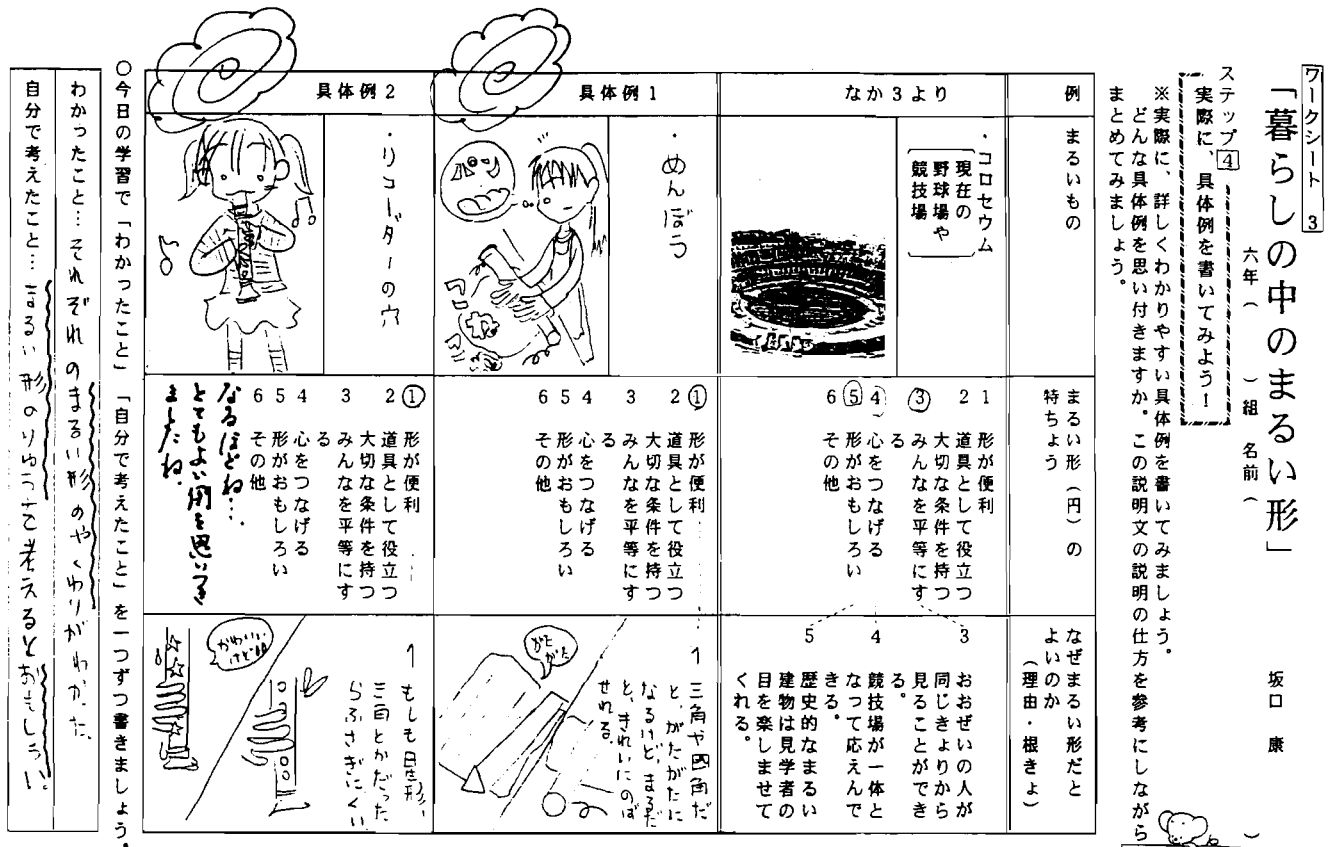 ワークシート 3
「暮らしの中のまるい形」
坂口 康
六年（　）組 名前（　）
ステップ 4
実際に、具体例を書いてみよう！
※実際に、詳しくわかりやすい具体例を書いてみましょう。
どんな具体例を思い付きますか。この説明文の説明の仕方を参考にしながら
まとめてみましょう。
例
まるいもの
まるい形（円）の
特ちょう
なぜまるい形だと
よいのか
（理由・根きょ）
なか３より
・コロセウム
現在の
野球場や
競技場
1 形が便利
2 道具として役立つ
大切な条件を持つ
③ みんなを平等にす
る
④ 心をつなげる
⑤ 形がおもしろい
6 その他
3 おおぜいの人が
同じきょりから
見ることができ
る。
4 競技場が一体と
なって応えんで
きる。
5 歴史的なまるい
建物は見学者の
目を楽しませて
くれる。
具体例１
・めんぼう
パン
① 形が便利
2 道具として役立つ
大切な条件を持つ
3 みんなを平等にす
る
4 心をつなげる
5 形がおもしろい
6 その他
1 三角や四角だ
と、がたがたに
なるけど、まるだ
と、きれいにのば
せれる。
がた
がた
具体例２
・リコーダーの穴
① 形が便利
2 道具として役立つ
大切な条件を持つ
3 みんなを平等にす
る
4 心をつなげる
5 形がおもしろい
6 その他
なるほどね…
とてもよい例を思いつき
ましたね。
1 もしも星形、
三角とかだった
らふさぎにくい
かわいい
けど
○今日の学習で「わかったこと」「自分で考えたこと」を一つずつ書きましょう。
わかったこと…それぞれのまるい形のやくわりがわかった。
自分で考えたこと…まるい形のりゆうを考えるとおもしろい。